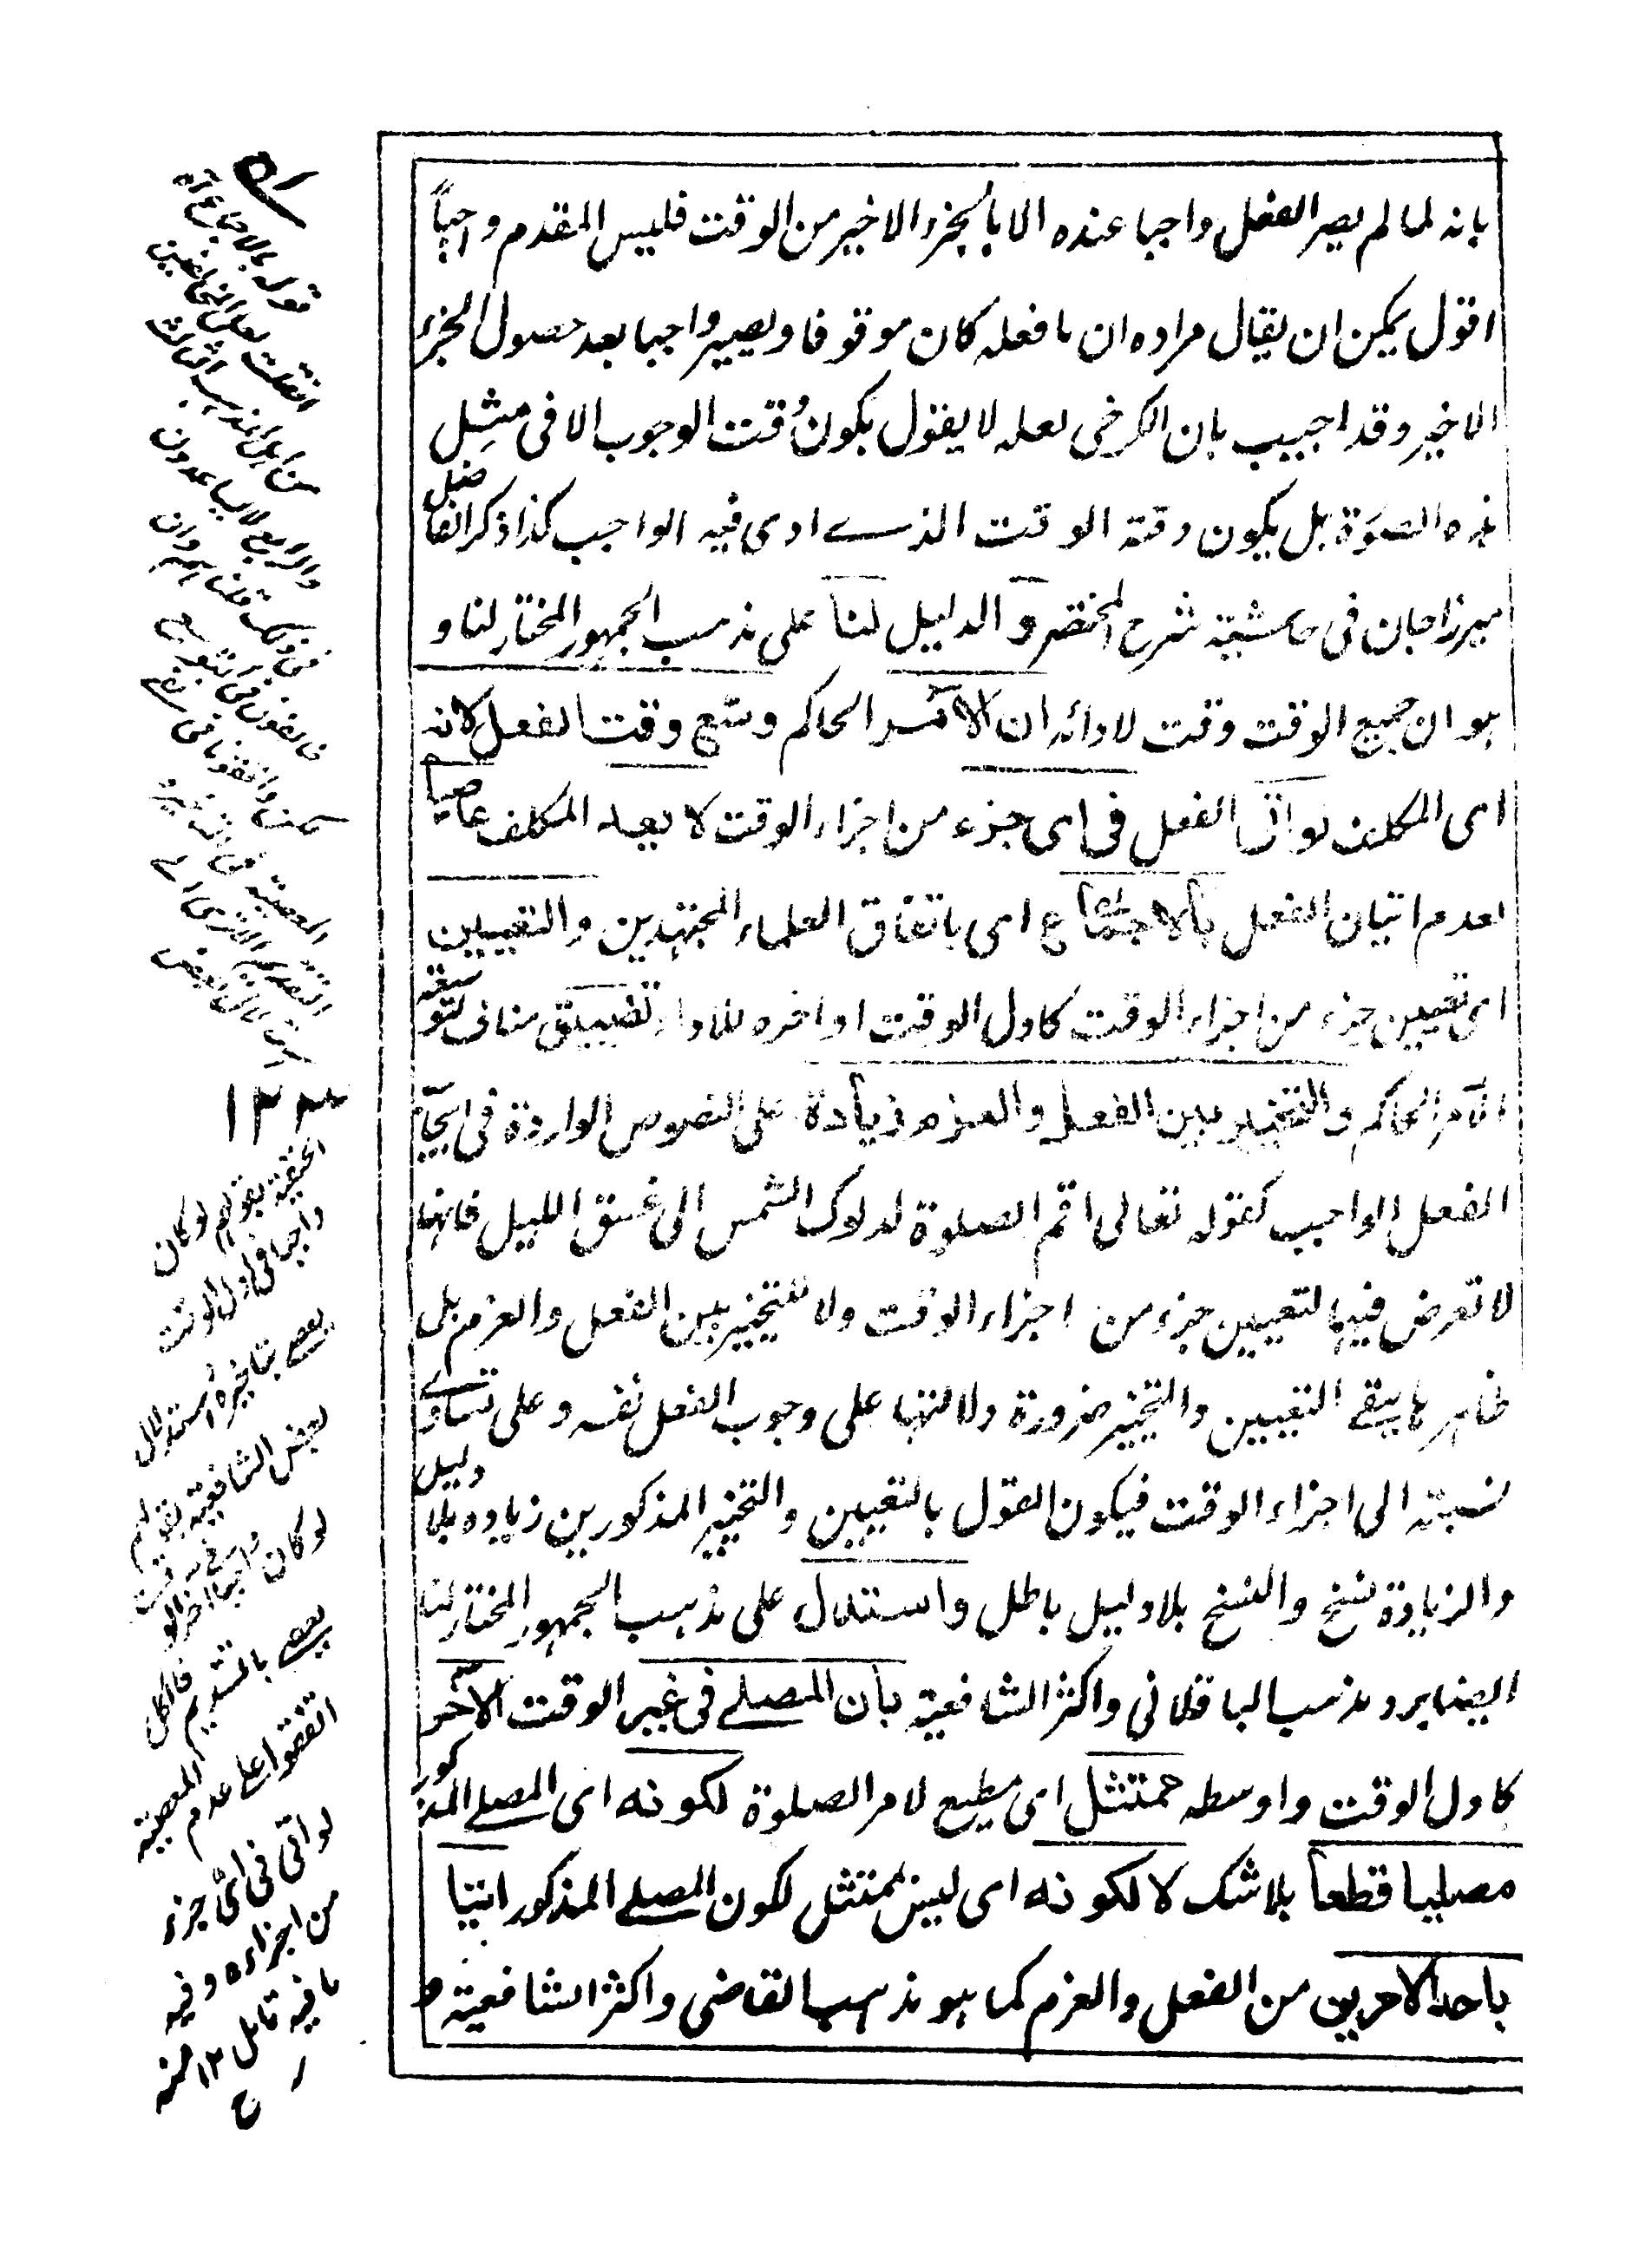 بانه لما لم يصر الفعل واجبا عنده الا بالجزء الاخير من الوقت فليس المقدم واجباً
اقول يمكن ان يقال مراده ان ما فعله كان موقوفا ويصير واجبا بعد حصول الجزء
الاخير وقد اجيب بان الكرخى لعله لا يقول بكون وقت الوجوب الا فى مثل
هذه الصورة بل يكون وقته الوقت الذے ادى فيه الواجب كذا ذكر الفاضل
ميرزاجان فى حاشية شرح المختصر و الدليل لنا على مذهب الجمهور المختار لنا و
هو ان جميع الوقت وقت لادائه ان الآمر الحاكم وسّع وقت الفعل لانه
اى المكلف لو اتى الفعل فى اى جزء من اجزاء الوقت لا يعد المكلف عاصياً
لعدم اتيان الفعل بالاجماع اى باتفاق العلماء المجتهدين و التعيين
اى تعيين جزء من اجزاء الوقت كاول الوقت او اخره للاداء تضييق منافى لتوسعة
الآمر الحاكم و التخيير بين الفعل والعزم زيادة على النصوص الواردة فى ايجاب
الفعل الواجب كقوله تعالى اقم الصلوة لدلوك الشمس الى غسق الليل فانها
لا تعرض فيها لتعيين جزء من اجزاء الوقت ولا للتخيير بين الفعل والعزم بل
ظاهرها ينفى التعيين والتخيير ضرورة دلالتها على وجوب الفعل نفسه وعلى تساوے
نسبته الى اجزاء الوقت فيكون القول بالتعيين والتخيير المذكورين زيادة بلا دليل
والزيادة نسخ والنسخ بلا دليل باطل واستدل على مذهب الجمهور المختار لنا
ايضا برد مذهب الباقلانى واكثر الشافعية بان المصلے فى غير الوقت الآخر
كاول الوقت واوسطه ممتثل اى مطيع لامر الصلوة لكونه اى المصلے المذكور
مصليا قطعاً بلا شك لا لكونه اى ليس بممتثل لكون المصلے المذكور اتيا
باحد الامرين من الفعل والعزم كما هو مذهب القاضى واكثر الشافعية
قوله بالاجماع
الحنفية بقولهم لو كان
واجبا فى اول الوقت
يعصے بتاخيره استدلال
بعض الشافعية بقولهم
لو كان واجبا اخر الوقت
يعصے بالتقديم فالكل
اتفقوا على عدم المعصية
لو اتى فى اىّ جزء
من اجزاءه وفيه
ما فيه تامل ١٢ منه